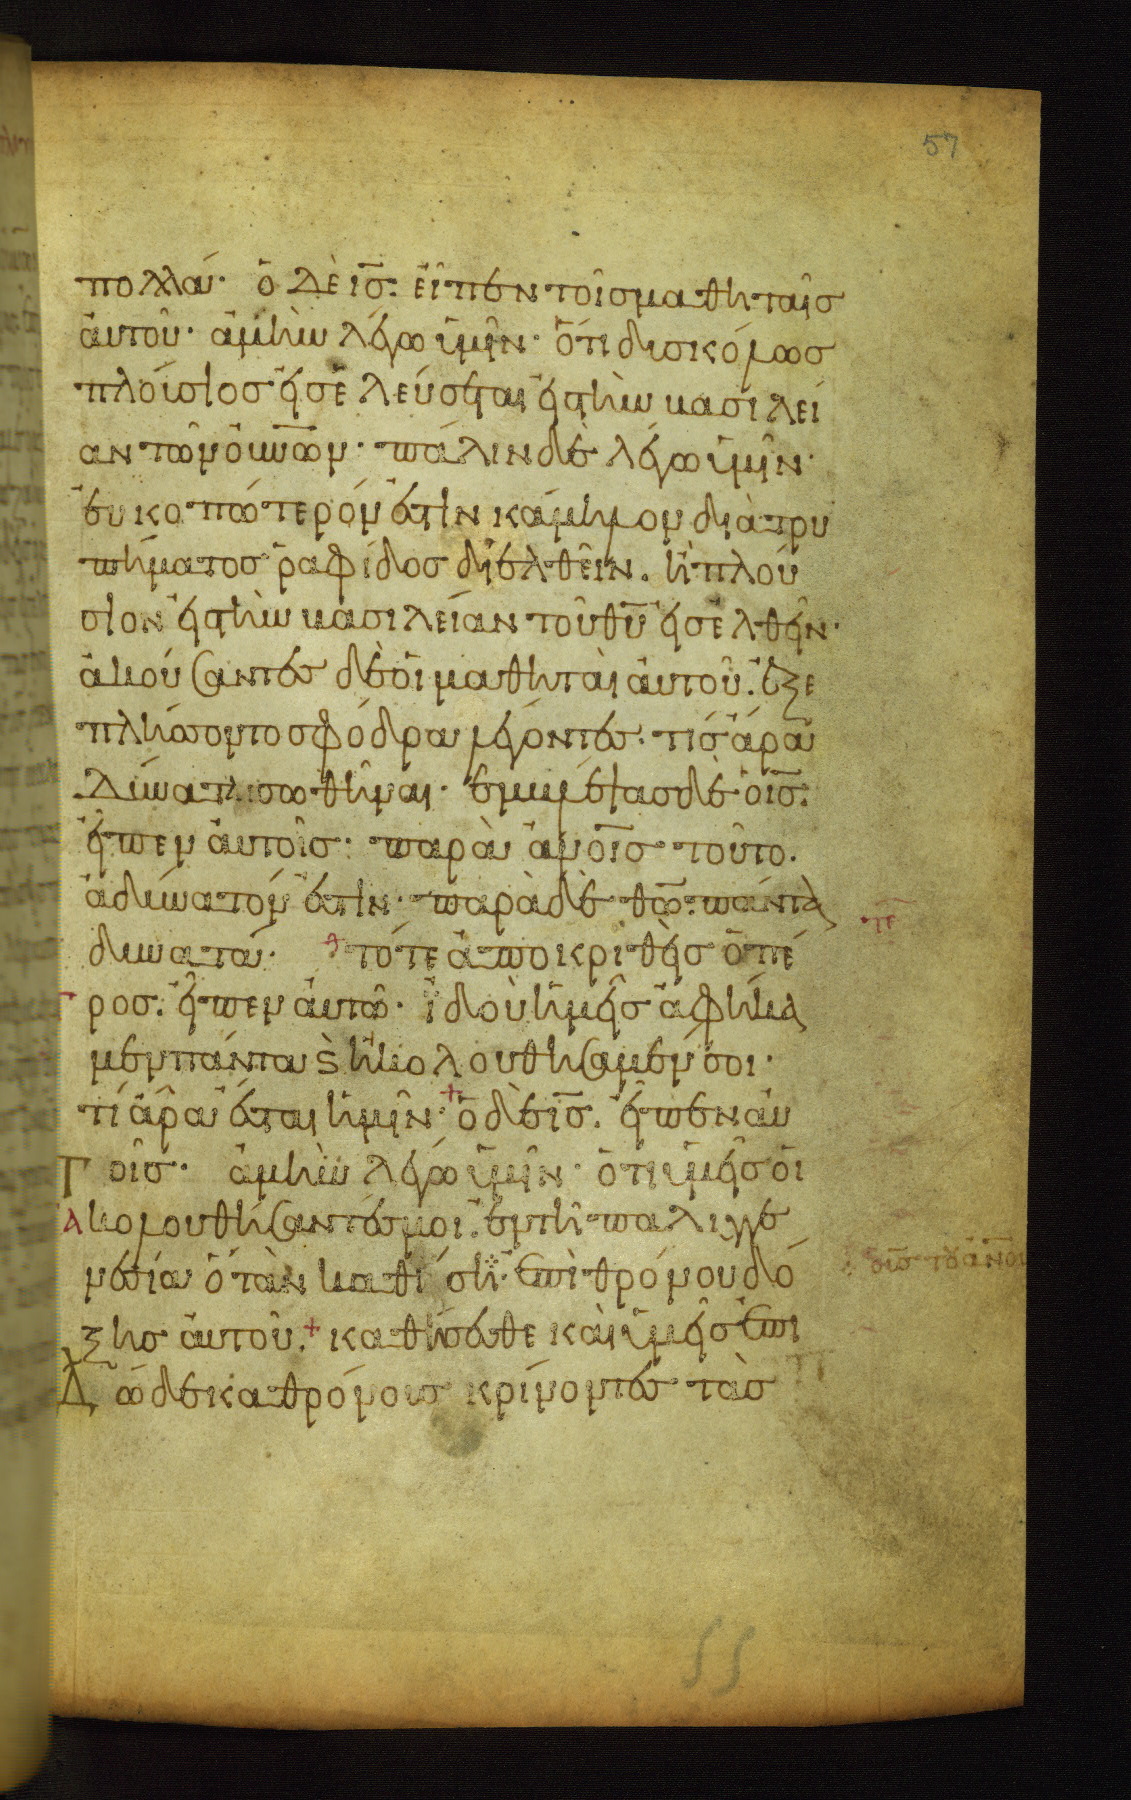 57
πολλά· ὁ δὲ ις̅. εἶπεν τοῖς μαθηταῖς
ἀυτοῦ· ἀμὴν λέγω ὑμῖν· ὅτι δυσκόλως
πλούσιος ἐισελεύσεται ἐις τὴν βασιλεί
αν τῶν ὀυνω̅ν· πάλιν δὲ λέγω ὑμῖν·
ἐυκοπώτερόν ἐστιν κάμηλον διὰ τρυ
πήματος ῥαφίδος διελθεῖν. ἢ πλού
σιον ἐις τὴν βασιλείαν τοῦ θυ̅ ἐισελθεῖν·
ἀκούσαντες δὲ ὁι μαθηταὶ ἀυτοῦ. ἐξε
πλήσσοντο σφόδρα λέγοντες· τίς ἄρα
δύναται σωθῆναι· ἐμβλέψας δὲ ὁ ις̅.
εἶπεν ἀυτοῖς· παρὰ ἀνοις̅ τοῦτο·
ἀδύνατόν ἐστιν· παρὰ δὲ θω̅. πάντα
δυνατά· τότε ἀποκριθεὶς ὁ πέ
τε
τρος. εἶπεν ἀυτῶ· ἰδοὺ ἡμεῖς ἀφήκα
μεν πάντα ϗ ἠκολουθήσαμέν σοι·
τί ἄρα ἔσται ἡμῖν· ὁ δὲ ις̅. εἶπεν ἀυ
τοῖς· ἀμὴν λέγω ὑμῖν· ὅτι ὑμεῖς ὁι
ἀκολουθήσαντές μοι. ἐν τῆ παλιγγε
νεσία ὅταν καθίση· ἐπὶ θρόνου δό
ὁ υις̅ τοῦ ἀνου
ξης ἀυτοῦ. + καθήσεσθε καὶ ὑμεῖς ἐπι
Δώδεκα θρόνους κρίνοντες τὰς